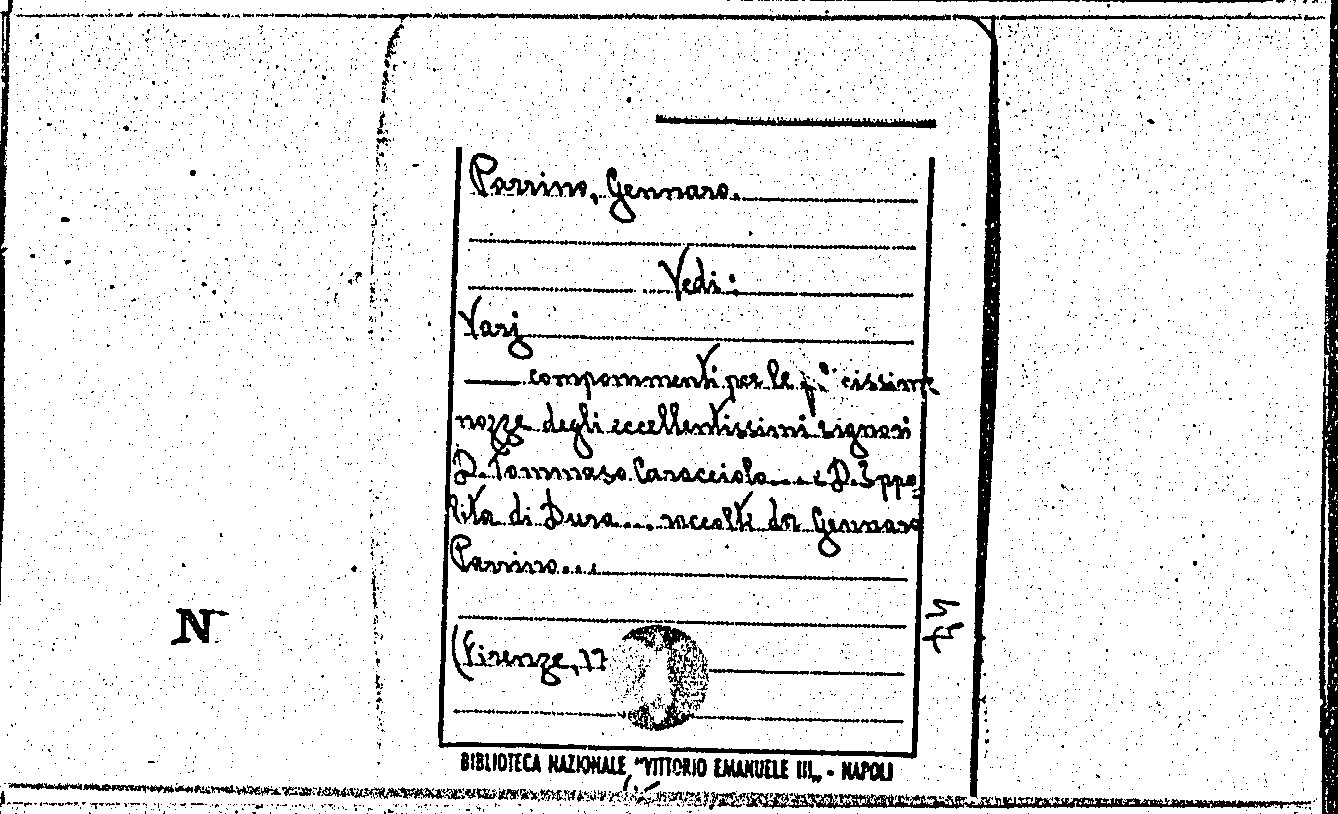 Parrino, Gennaro.
Vedi:
Varj
componimenti per le
nozze degli eccellentissimi signori
D. Tommaso Caracciolo.... e D. Ippo-
lita di Dura.... raccolti da Gennaro
Parrino...
(Firenze, 17
N
BIBLIOTECA NAZIONALE "VITTORIO EMANUELE III„ - NAPOLI